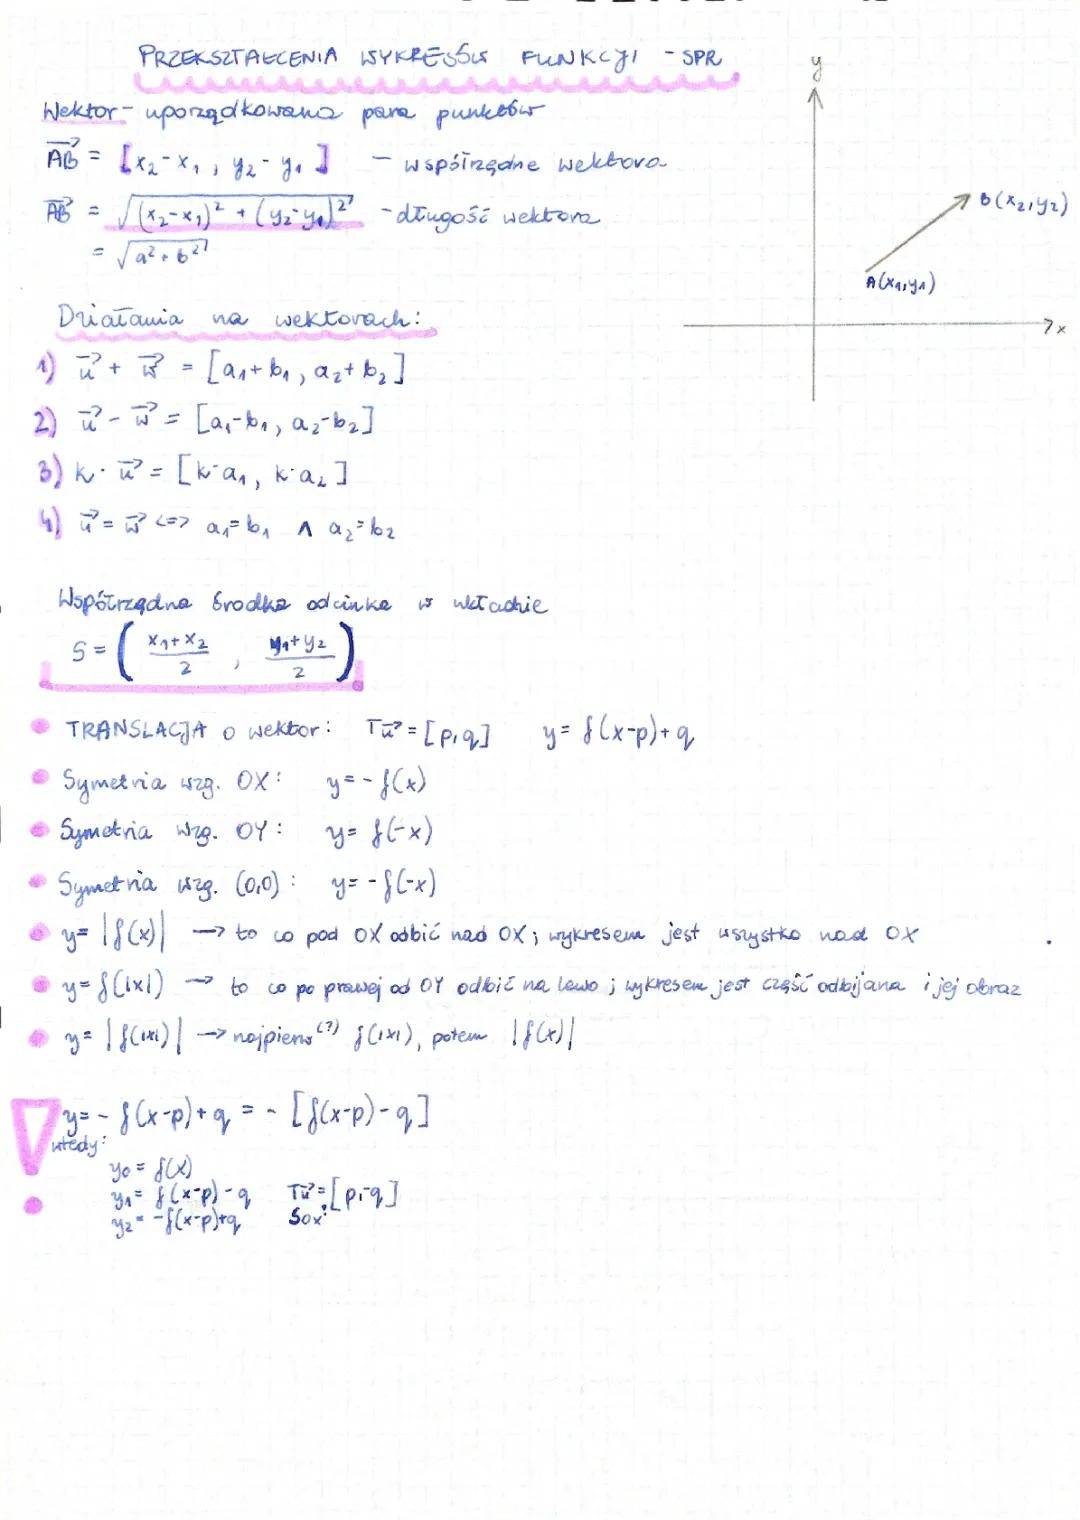 PRZEKSZTAŁCENIA WYKRESÓW FUNKCJI - SPR
Wektor - uporządkowana para punktów
A⃗B⃗ = [x₂-x₁, y₂-y₁] - współrzędne wektora
A⃗B⃗ = √((x₂-x₁)² + (y₂-y₁)²) - długość wektora
= √(a²+b²)
y
B(x₂,y₂)
A(x₁,y₁)
x
Działania na wektorach:
1) u⃗ + w⃗ = [a₁+b₁, a₂+b₂]
2) u⃗ - w⃗ = [a₁-b₁, a₂-b₂]
3) k·u⃗ = [k·a₁, k·a₂]
4) u⃗ = w⃗ <=> a₁=b₁ ∧ a₂=b₂
Współrzędna środka odcinka w układzie
S = ((x₁+x₂)/2, (y₁+y₂)/2)
TRANSLACJA o wektor: Tu⃗ = [p,q] y= f(x-p)+q
Symetria wzg. OX: y= -f(x)
Symetria wzg. OY: y= f(-x)
Symetria wzg. (0,0): y= -f(-x)
y= |f(x)| → to co pod OX odbić nad OX; wykresem jest wszystko nad OX
y= f(|x|) → to co po prawej od OY odbić na lewo; wykresem jest część odbijana i jej obraz
y= |f(|x|)| → najpierw (?) f(|x|), potem |f(x)|
! y= - f(x-p)+q = - [f(x-p)-q]
wtedy:
y₀ = f(x)
y₁ = f(x-p)-q Tu⃗ = [p,-q]
y₂ = -f(x-p)+q Sox: